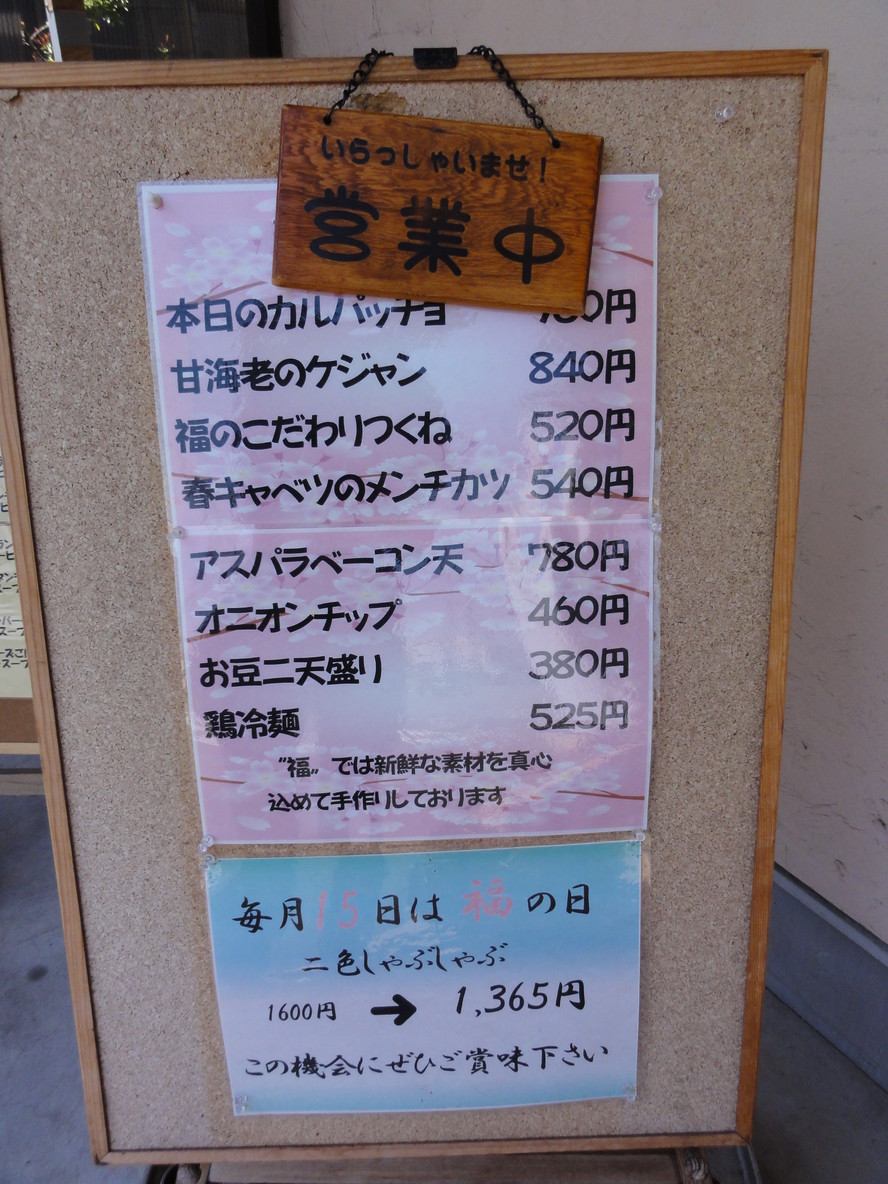 いらっしゃいませ!
営業中
本日のカルパッチョ
甘海老のケジャン 840円
福のこだわりつくね 520円
春キャベツのメンチカツ 540円
アスパラベーコン天 780円
オニオンチップ 460円
お豆二天盛り 380円
鶏冷麺 525円
"福"では新鮮な素材を真心
込めて手作りしております
毎月15日は福の日
二色しゃぶしゃぶ
1600円 → 1,365円
この機会にぜひご賞味下さい